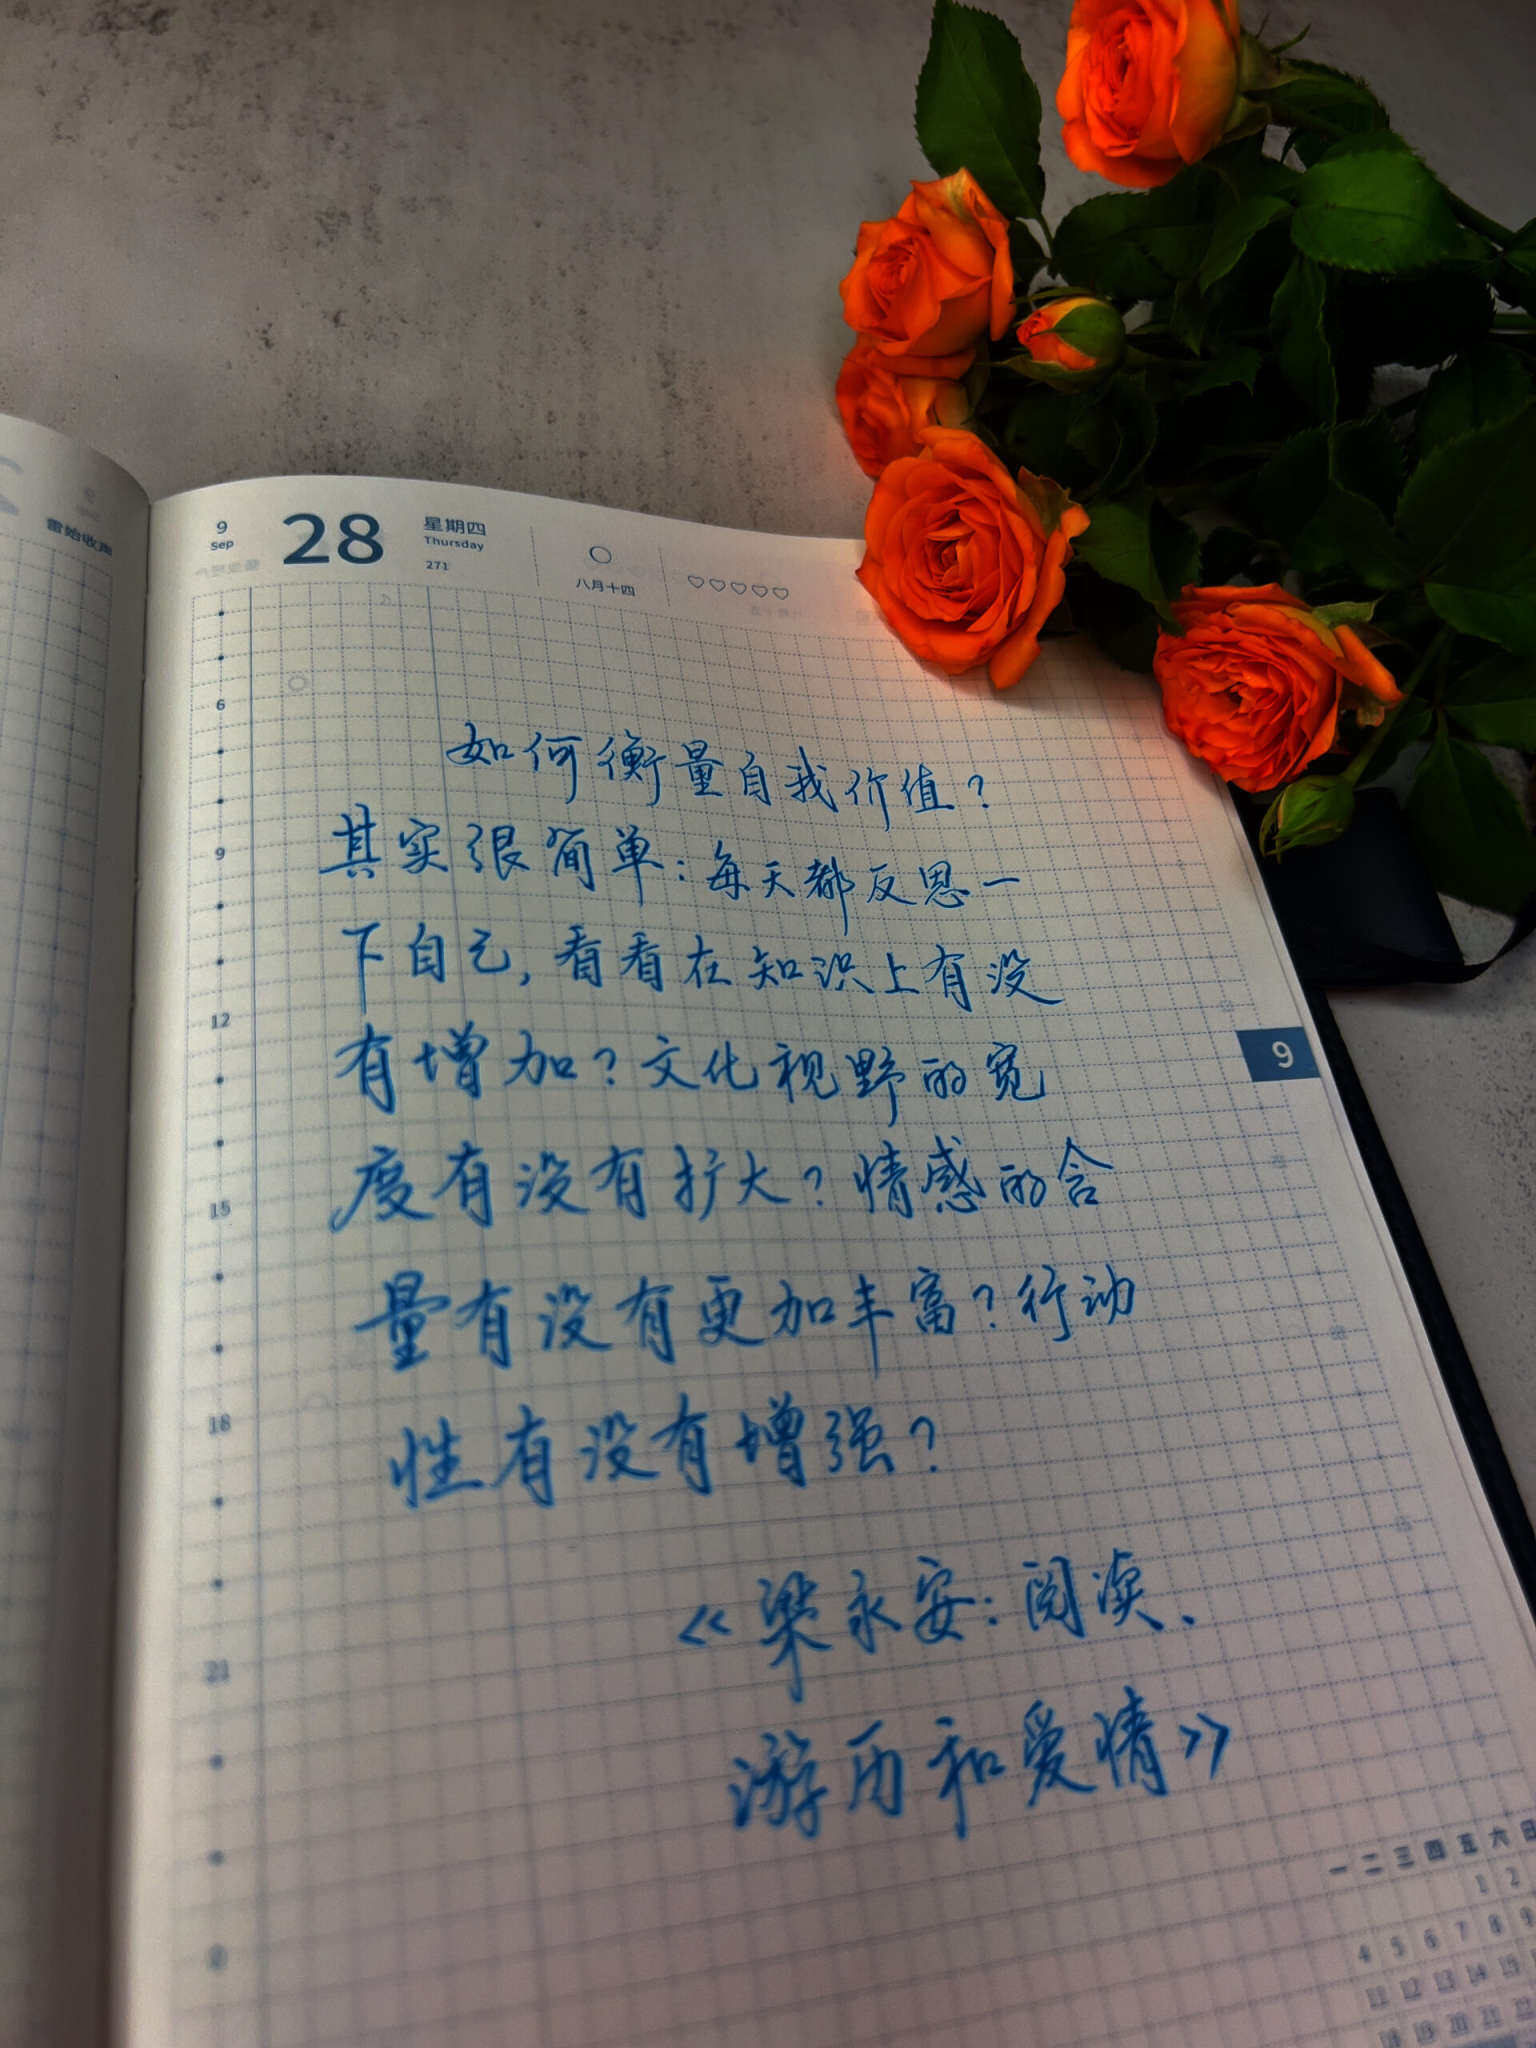 雷始收声
9
Sep
28
星期四
Thursday
271
八月十四
6
9
12
15
18
21
9
如何衡量自我价值？
其实很简单：每天都反思一
下自己，看看在知识上有没
有增加？文化视野的宽
度有没有扩大？情感的含
量有没有更加丰富？行动
性有没有增强？
《梁永安：阅读、
游历和爱情》
一 二 三 四 五 六 日
1 2
4 5 6 7 8 9
11 12 13 14 15
18 19 20 21 22